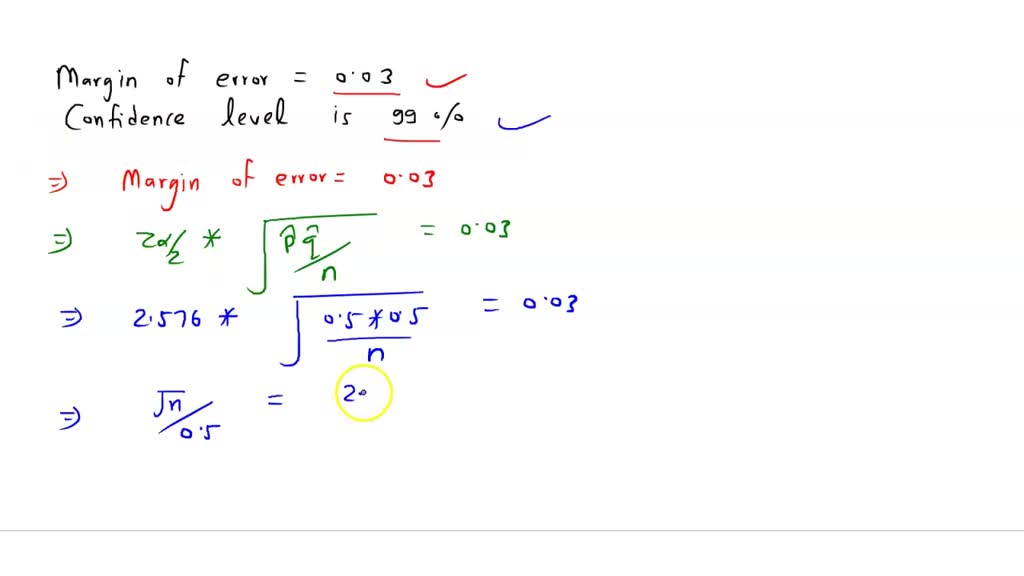 Margin of error = 0.03
Confidence level is 99 %
⇒ Margin of error = 0.03
⇒ Zα/2 * √(p̂ q̂ / n) = 0.03
⇒ 2.576 * √(0.5 * 0.5 / n) = 0.03
⇒ √n / 0.5 = 2.